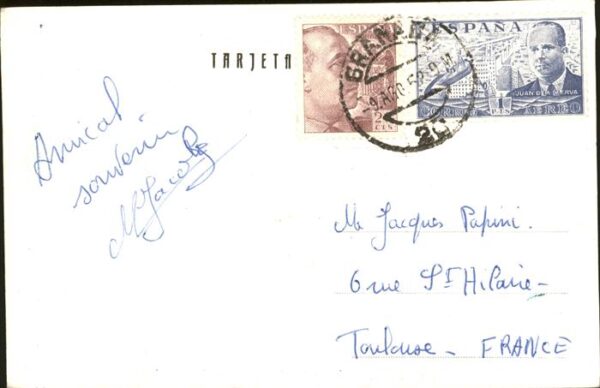 TARJETA
ESPAÑA
CTS
GRANADA
ESPAÑA
JUAN DE LA CIERVA
CORREO 1 PTS AEREO
Amical
souvenir
Mr Jacques Papini.
6 rue St Hilaire -
Toulouse - FRANCE